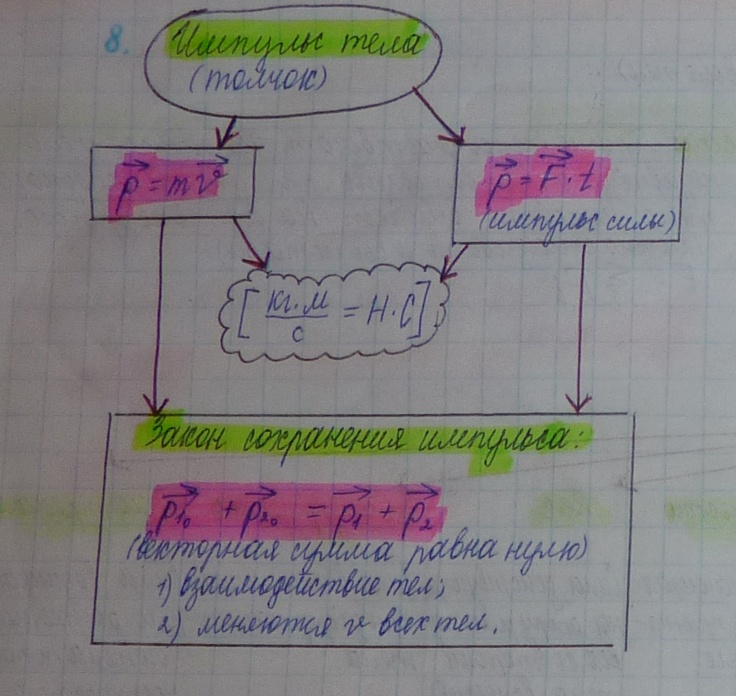 8. Импульс тела
(толчок)
p⃗ = mv⃗
p⃗ = F⃗ · t
(импульс силы)
[кг·м/с = Н·С]
Закон сохранения импульса:
p⃗₁₀ + p⃗₂₀ = p⃗₁ + p⃗₂
(векторная сумма равна нулю)
1) взаимодействие тел;
2) меняются v всех тел.